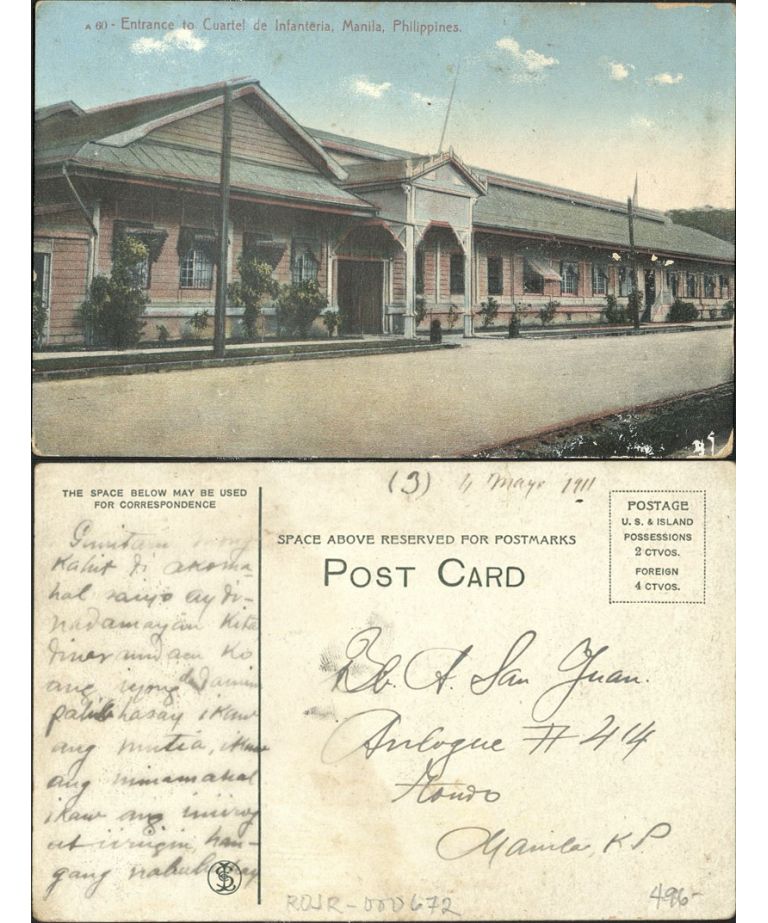 A 60 - Entrance to Cuartel de Infanteria, Manila, Philippines.
(3) 4 Mayo 1911
THE SPACE BELOW MAY BE USED
FOR CORRESPONDENCE
Kahit di akoma-
hal saiyo ay di-
nadamayan kita
ko
ang iyong
ikaw
ang mutia, ikaw
ang minamahal
ikaw ang iniirog
at iirugin, han-
gang nabubuhay
SPACE ABOVE RESERVED FOR POSTMARKS
POST CARD
POSTAGE
U. S. & ISLAND
POSSESSIONS
2 CTVOS.
FOREIGN
4 CTVOS.
A. San Juan.
Anloague # 414
Tondo
Manila
ROJR-000672
496-